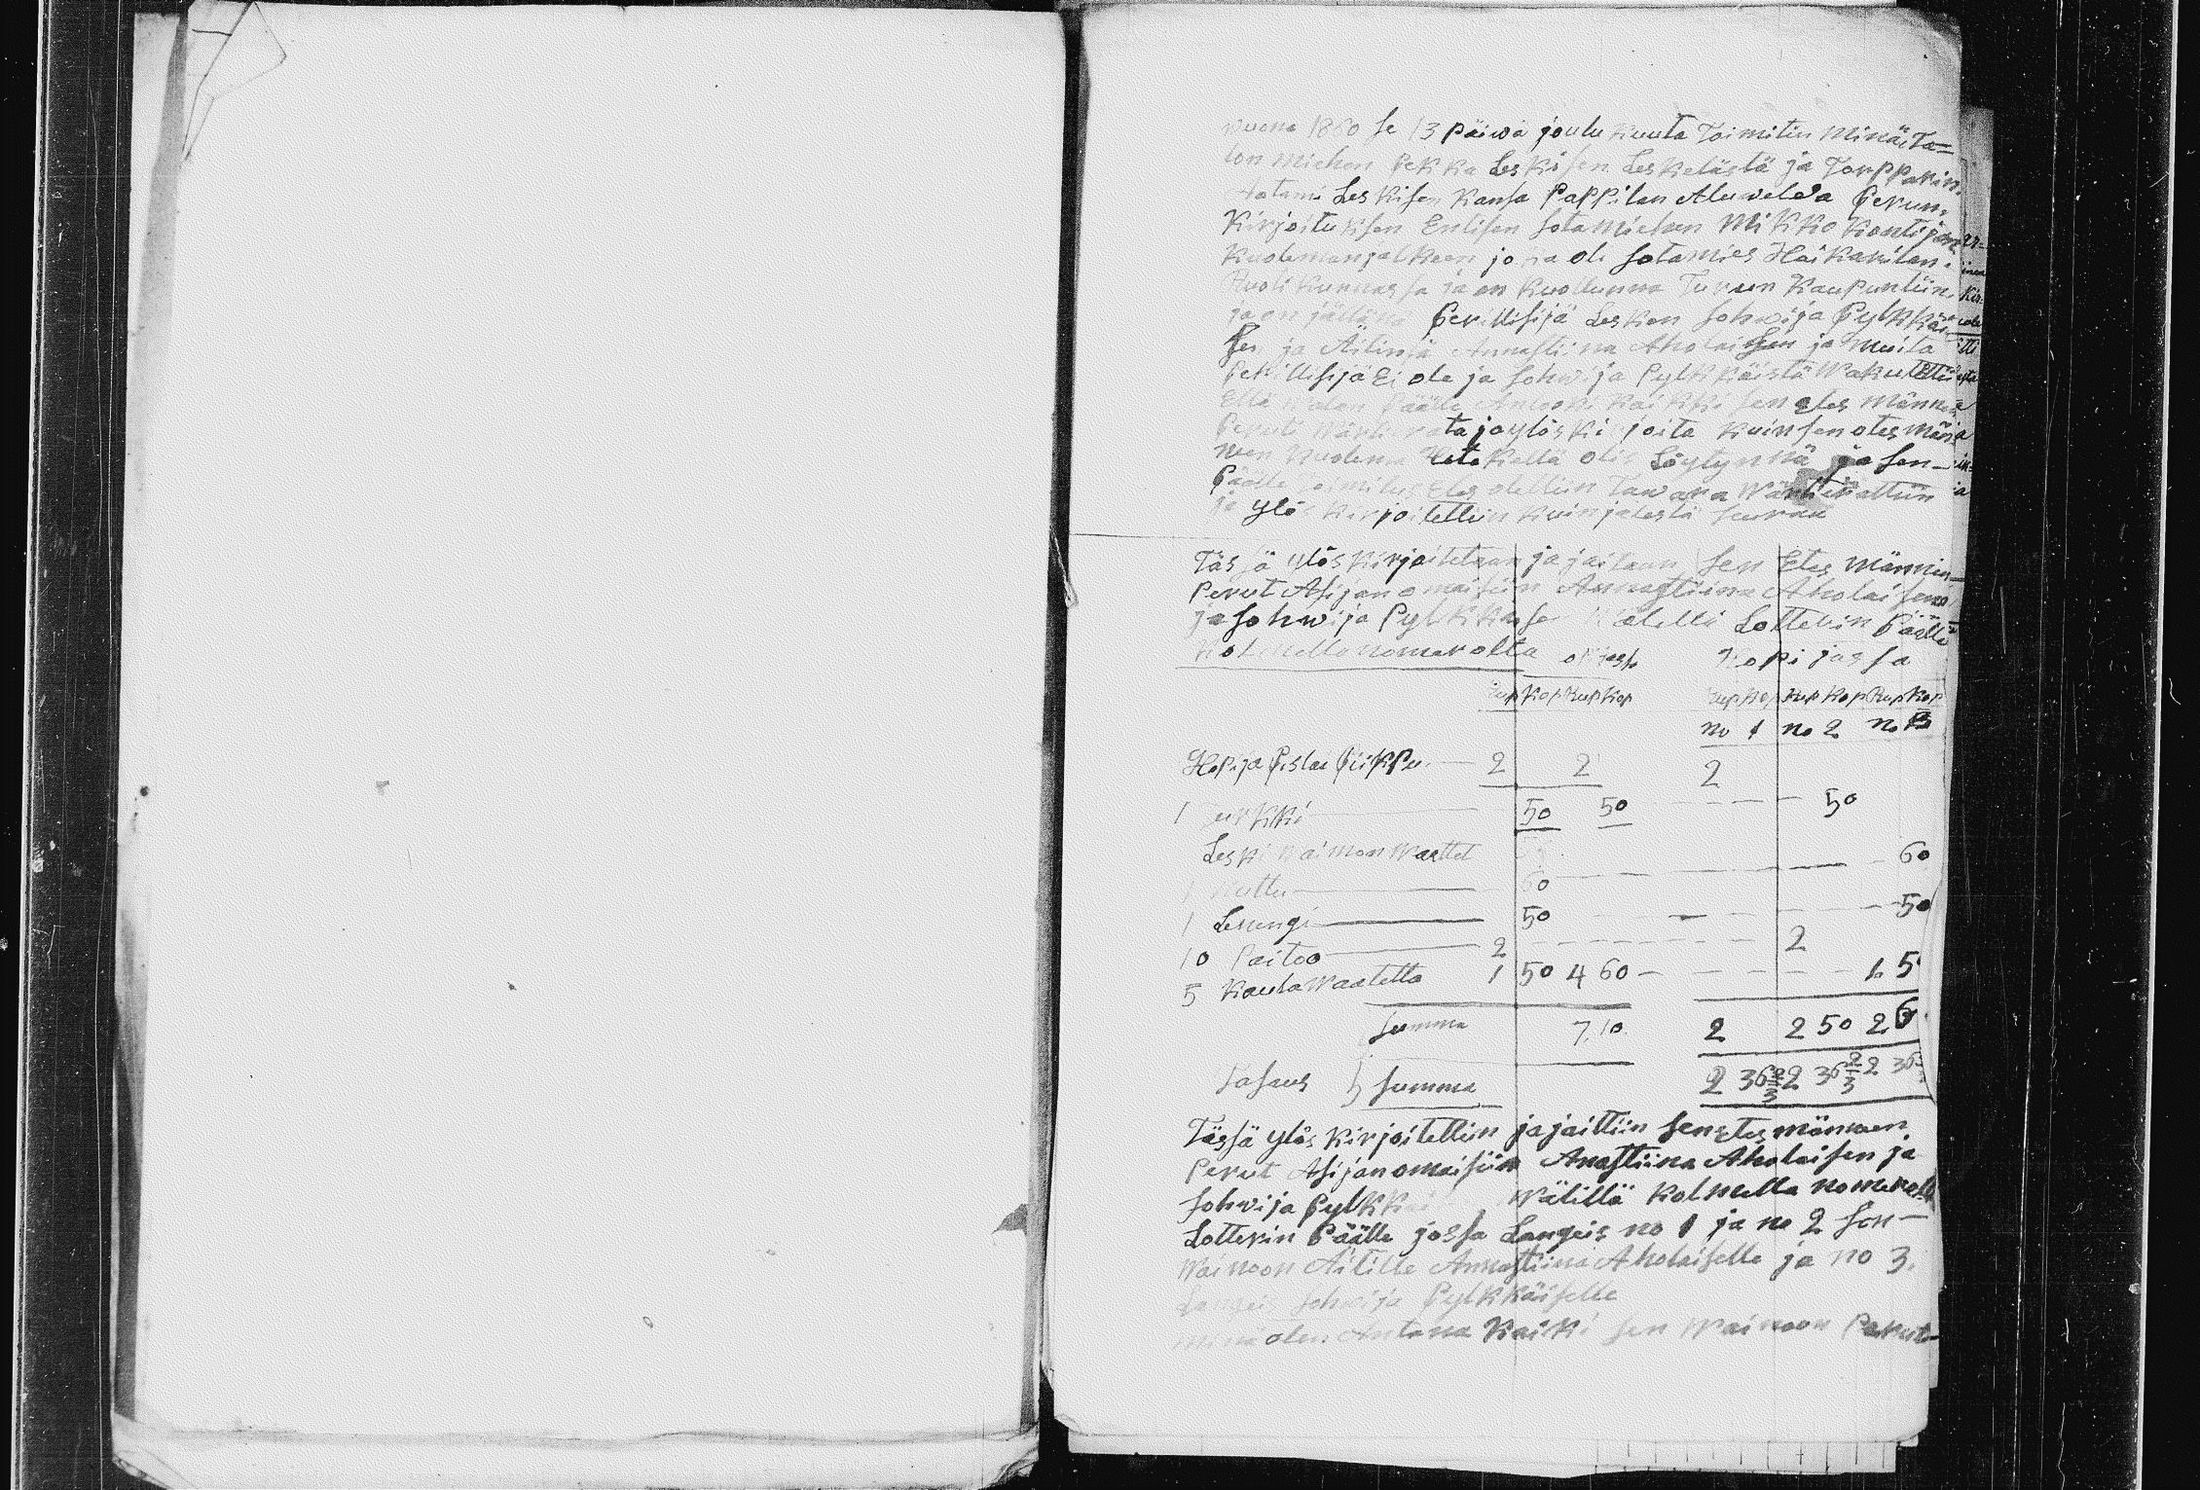 wuona 1860 se 13 päiwä joulukuuta Toimitin Minä Ta=
lon miehen Pekka Leskisen Leskelästä ja Torpparin
Leskisen kansa Pappilan Aluwelda Perun
Kirjoituksen Entisen sotamiehen Mikko Kontijan
kuoleman jälkeen joka oli sotamies Häikäniilan
Ruotikunnassa ja on kuollunna Turun kaupuntiin
ja on jättänä Perillisijä Lesken Sohwija Pylkkäi
sen ja Äitinsä Annastiina Aholaisen ja muita
Perillisijä Ei ole ja Sohwija Pylkkäistä wakutettiin
Että walan Päälle kaikki sen Etes männen
Perut ta ja ylöskirjoita kuin sen otes män
nen kuolema Hetekellä oli Löytynnä ja sen
Päälle toimitus Etes otettiin Tawara wärterattiin
ja ylös kirjoitettiin kuin jälestä seuraa
Tässä ylös kirjoitetaan ja jaitaan sen Etes männin
Perut Asijanomaisiin Annastiina Aholaisen
ja Sohwija Pylkkäise wälilli Lotterin Päälle
Kolmella nomerolta
Hopijassa
Rup Kop Rup Kop Rup Kop Rup Kop Rup Kop
no 1 no 2 no 3
Hopija Pislai Piippu 2 2 2
1 Turkki 50 50 50
Leski waimon waattet 60
1 Nuttu 60
1 Leningi 50 50
10 Paitoo 2 2
5 Kaulawaatetta 1 50 4 60 1. 5
summa 7.10. 2 2 50 2 6
Jasaus summa 2 36 2/3 2 36 2/3 2 36
Tässä ylös kirjoitettiin ja jaittiin sen Etes männen
Perut Asijanomaisiin Anastiina Aholaisen ja
Sohwija Pylkkäi wälillä kolmella nomerolla
Lotterin Päälle jossa Langeis no 1 ja no 2 sen
wainoon Äitille Annastiina Aholaiselle ja no 3.
Langeis Sohwija Pylkkäiselle
Minä olen Antana kaikki sen wainoon Perut